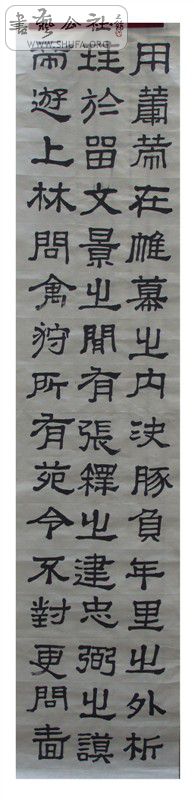 書藝公社
WWW.SHUFA.ORG
用籌策在帷幕之内決勝負千里之外析
珪於留文景之間有張釋之建忠弼之謨
帝遊上林問禽狩所有苑令不對更問嗇